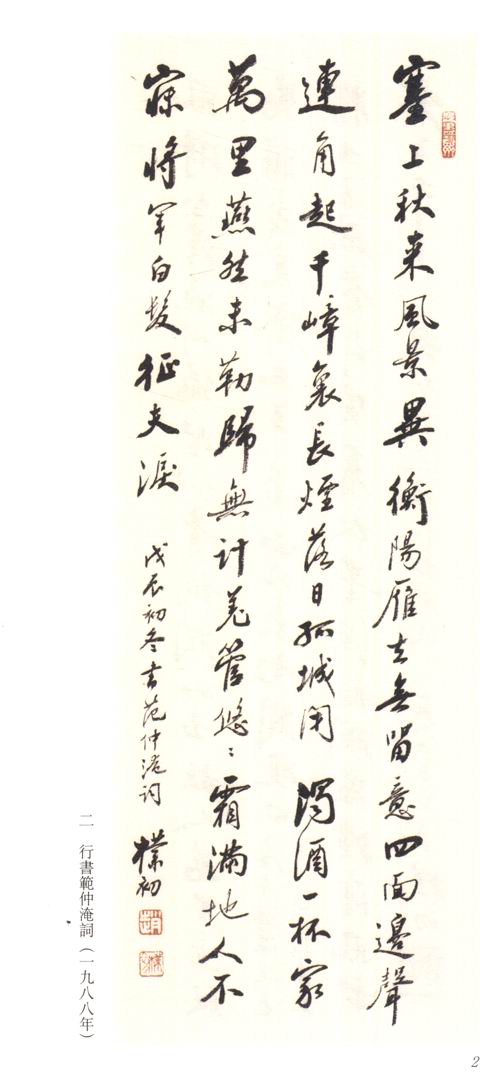 塞上秋来風景異衡陽雁去無留意四面邊聲
連角起千嶂裏長煙落日孤城閉濁酒一杯家
萬里燕然未勒歸無計羌管悠〻霜滿地人不
寐將軍白髮征夫淚
戊辰初冬書范仲淹詞 樸初
二 行書範仲淹詞（一九八八年）
2